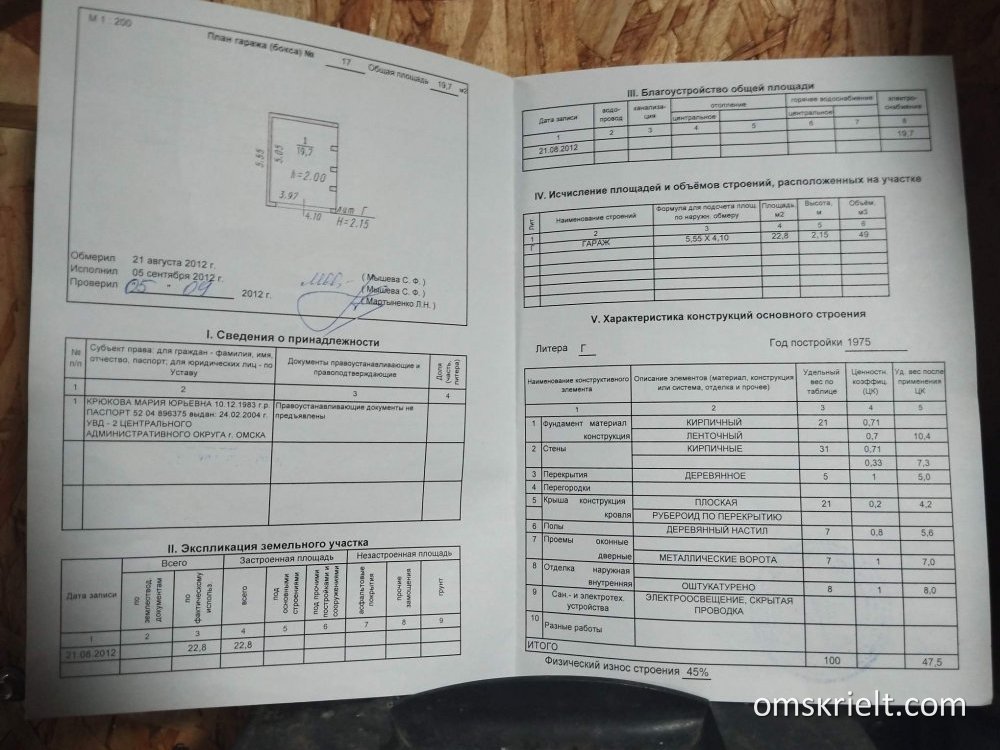 М 1 : 200
План гаража (бокса) № 17 Общая площадь 19,7 м2
5,55
5,05
1
19,7
h=2.00
3,97
4,10
лит Г
H=2.15
Обмерил 21 августа 2012 г. ( Мышева С. Ф. )
Исполнил 05 сентября 2012 г. ( Мышева С. Ф. )
Проверил 05 " 09 2012 г. ( Мартыненко Л.Н. )
I. Сведения о принадлежности
№ п/п
Субъект права: для граждан - фамилия, имя,
отчество, паспорт; для юридических лиц - по
Уставу
Документы правоустанавливающие и
правоподтверждающие
Доля (часть, литера)
1 2 3 4
1 КРЮКОВА МАРИЯ ЮРЬЕВНА 10.12.1983 г.р. Правоустанавливающие документы не
ПАСПОРТ 52 04 896375 выдан: 24.02.2004 г. предъявлены
УВД - 2 ЦЕНТРАЛЬНОГО
АДМИНИСТРАТИВНОГО ОКРУГА г. ОМСКА
II. Экспликация земельного участка
Дата записи
Всего Застроенная площадь Незастроенная площадь
по землеотвод. документам
по фактическому использ.
всего
под основными строениями
под прочими постройками и сооружениями
асфальтовые покрытия
прочие замощения
грунт
1 2 3 4 5 6 7 8 9
21.08.2012 22,8 22,8
III. Благоустройство общей площади
Дата записи
водо-
провод
канализа-
ция
отопление
центральное
горячее водоснабжение
центральное
электро-
снабжение
1 2 3 4 5 6 7 8
21.08.2012 19,7
IV. Исчисление площадей и объёмов строений, расположенных на участке
Лит
Наименование строений
Формула для подсчета площ.
по наружн. обмеру
Площадь,
м2
Высота,
м
Объём,
м3
1 2 3 4 5 6
Г ГАРАЖ 5,55 X 4,10 22,8 2,15 49
V. Характеристика конструкций основного строения
Литера Г Год постройки 1975
Наименование конструктивного
элемента
Описание элементов (материал, конструкция
или система, отделка и прочее)
Удельный
вес по
таблице
Ценностн.
коэффиц.
(ЦК)
Уд. вес после
применения
ЦК
1 2 3 4 5
1 Фундамент материал КИРПИЧНЫЙ 21 0,71
конструкция ЛЕНТОЧНЫЙ 0,7 10,4
2 Стены КИРПИЧНЫЕ 31 0,71
0,33 7,3
3 Перекрытия ДЕРЕВЯННОЕ 5 1 5,0
4 Перегородки
5 Крыша конструкция ПЛОСКАЯ 21 0,2 4,2
кровля РУБЕРОИД ПО ПЕРЕКРЫТИЮ
6 Полы ДЕРЕВЯННЫЙ НАСТИЛ 7 0,8 5,6
7 Проемы оконные
дверные МЕТАЛЛИЧЕСКИЕ ВОРОТА 7 1 7,0
8 Отделка наружная
внутренняя ОШТУКАТУРЕНО 8 1 8,0
9 Сан.- и электротех. ЭЛЕКТРООСВЕЩЕНИЕ, СКРЫТАЯ
устройства ПРОВОДКА
10 Разные работы
ИТОГО 100 47,5
Физический износ строения 45%
omskrielt.com